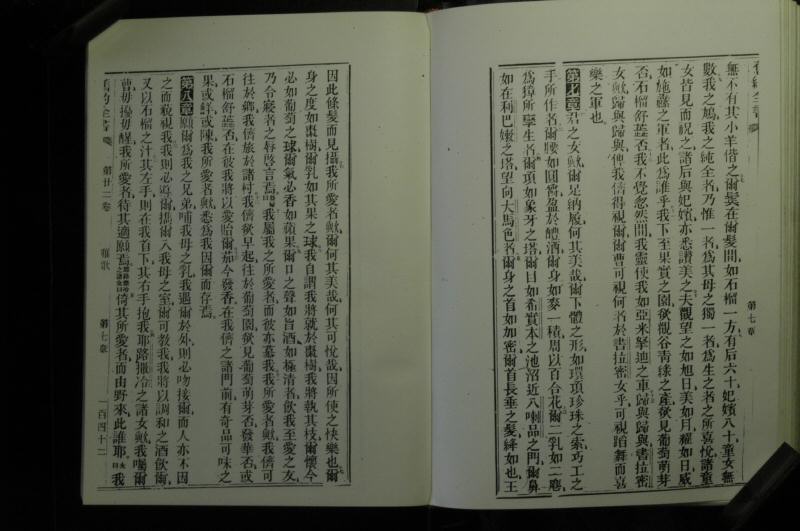 舊約全書
第七章
無不有其小羊偕之爾鬓在爾髮間如石榴一方有后六十妃嬪八十童女無
數我之鳩我之純全者乃惟一者爲其母之獨一者爲生之者之所喜悅諸童
女皆見而祝之諸后與妃嬪亦悉讚美之夫觀望之如旭日美如月耀如日威
如施纛之軍者此爲誰乎我下至果實之園欲觀谷靑綠之產欲見葡萄萌芽
否石榴舒蕋否我不覺忽然間我靈使我如亞米拏迪之車歸與歸與書拉密
女歟歸與歸與俾我儕得視爾爾曹可視何者於書拉密女乎可視蹈舞而喜
樂之軍也
第七章君之女歟爾足納履何其美哉爾下體之形如環項珍珠之索巧工之
手所作者爾腰如圓觴盈於醴酒爾身如麥一積周以百合花爾二乳如二麀
爲獐所孿生者爾項如象牙之塔爾目如希實本之池沼近八喇品之門爾鼻
如在利巴嫩之塔望向大馬色者爾身之首如加密爾首長垂之髮絳如也王
因此條髮而見攝我所愛者歟爾何其美哉何其可悅哉因所使之快樂也爾
身之度如棗樹爾乳如其果之球我自謂我將就於棗樹我將執其枝爾懷今
必如葡萄之球爾氣必香如蘋果爾口之聲如旨酒如極清者飲我至愛之友
乃令寢者之唇啓言焉我屬我之所愛者而彼亦慕我我所愛者歟我儕可
往於鄉我儕旅於諸村我儕欲早起往於葡萄園欲見葡萄萌芽否發華否或
石榴舒蕋否在彼我將以愛貽爾茄今發香在我儕之諸門前有奇品可味之
果或鮮或陳我所愛者歟悉爲我因爾而存焉
第八章願爾爲我之兄弟哺我母之乳我遇爾於外則必吻接爾而人亦不因
之而藐視我我則必導爾攜爾入我母之室爾可教我我將以調和之酒飲爾
又以石榴之汁其左手則在我首下其右手抱我耶路撒冷之諸女歟我囑爾
曹毋擾毋醒我所愛者待其適願焉倚其所愛者而由野來此誰耶我
舊約全書
第廿二卷
雅歌
第七章
一百四十二